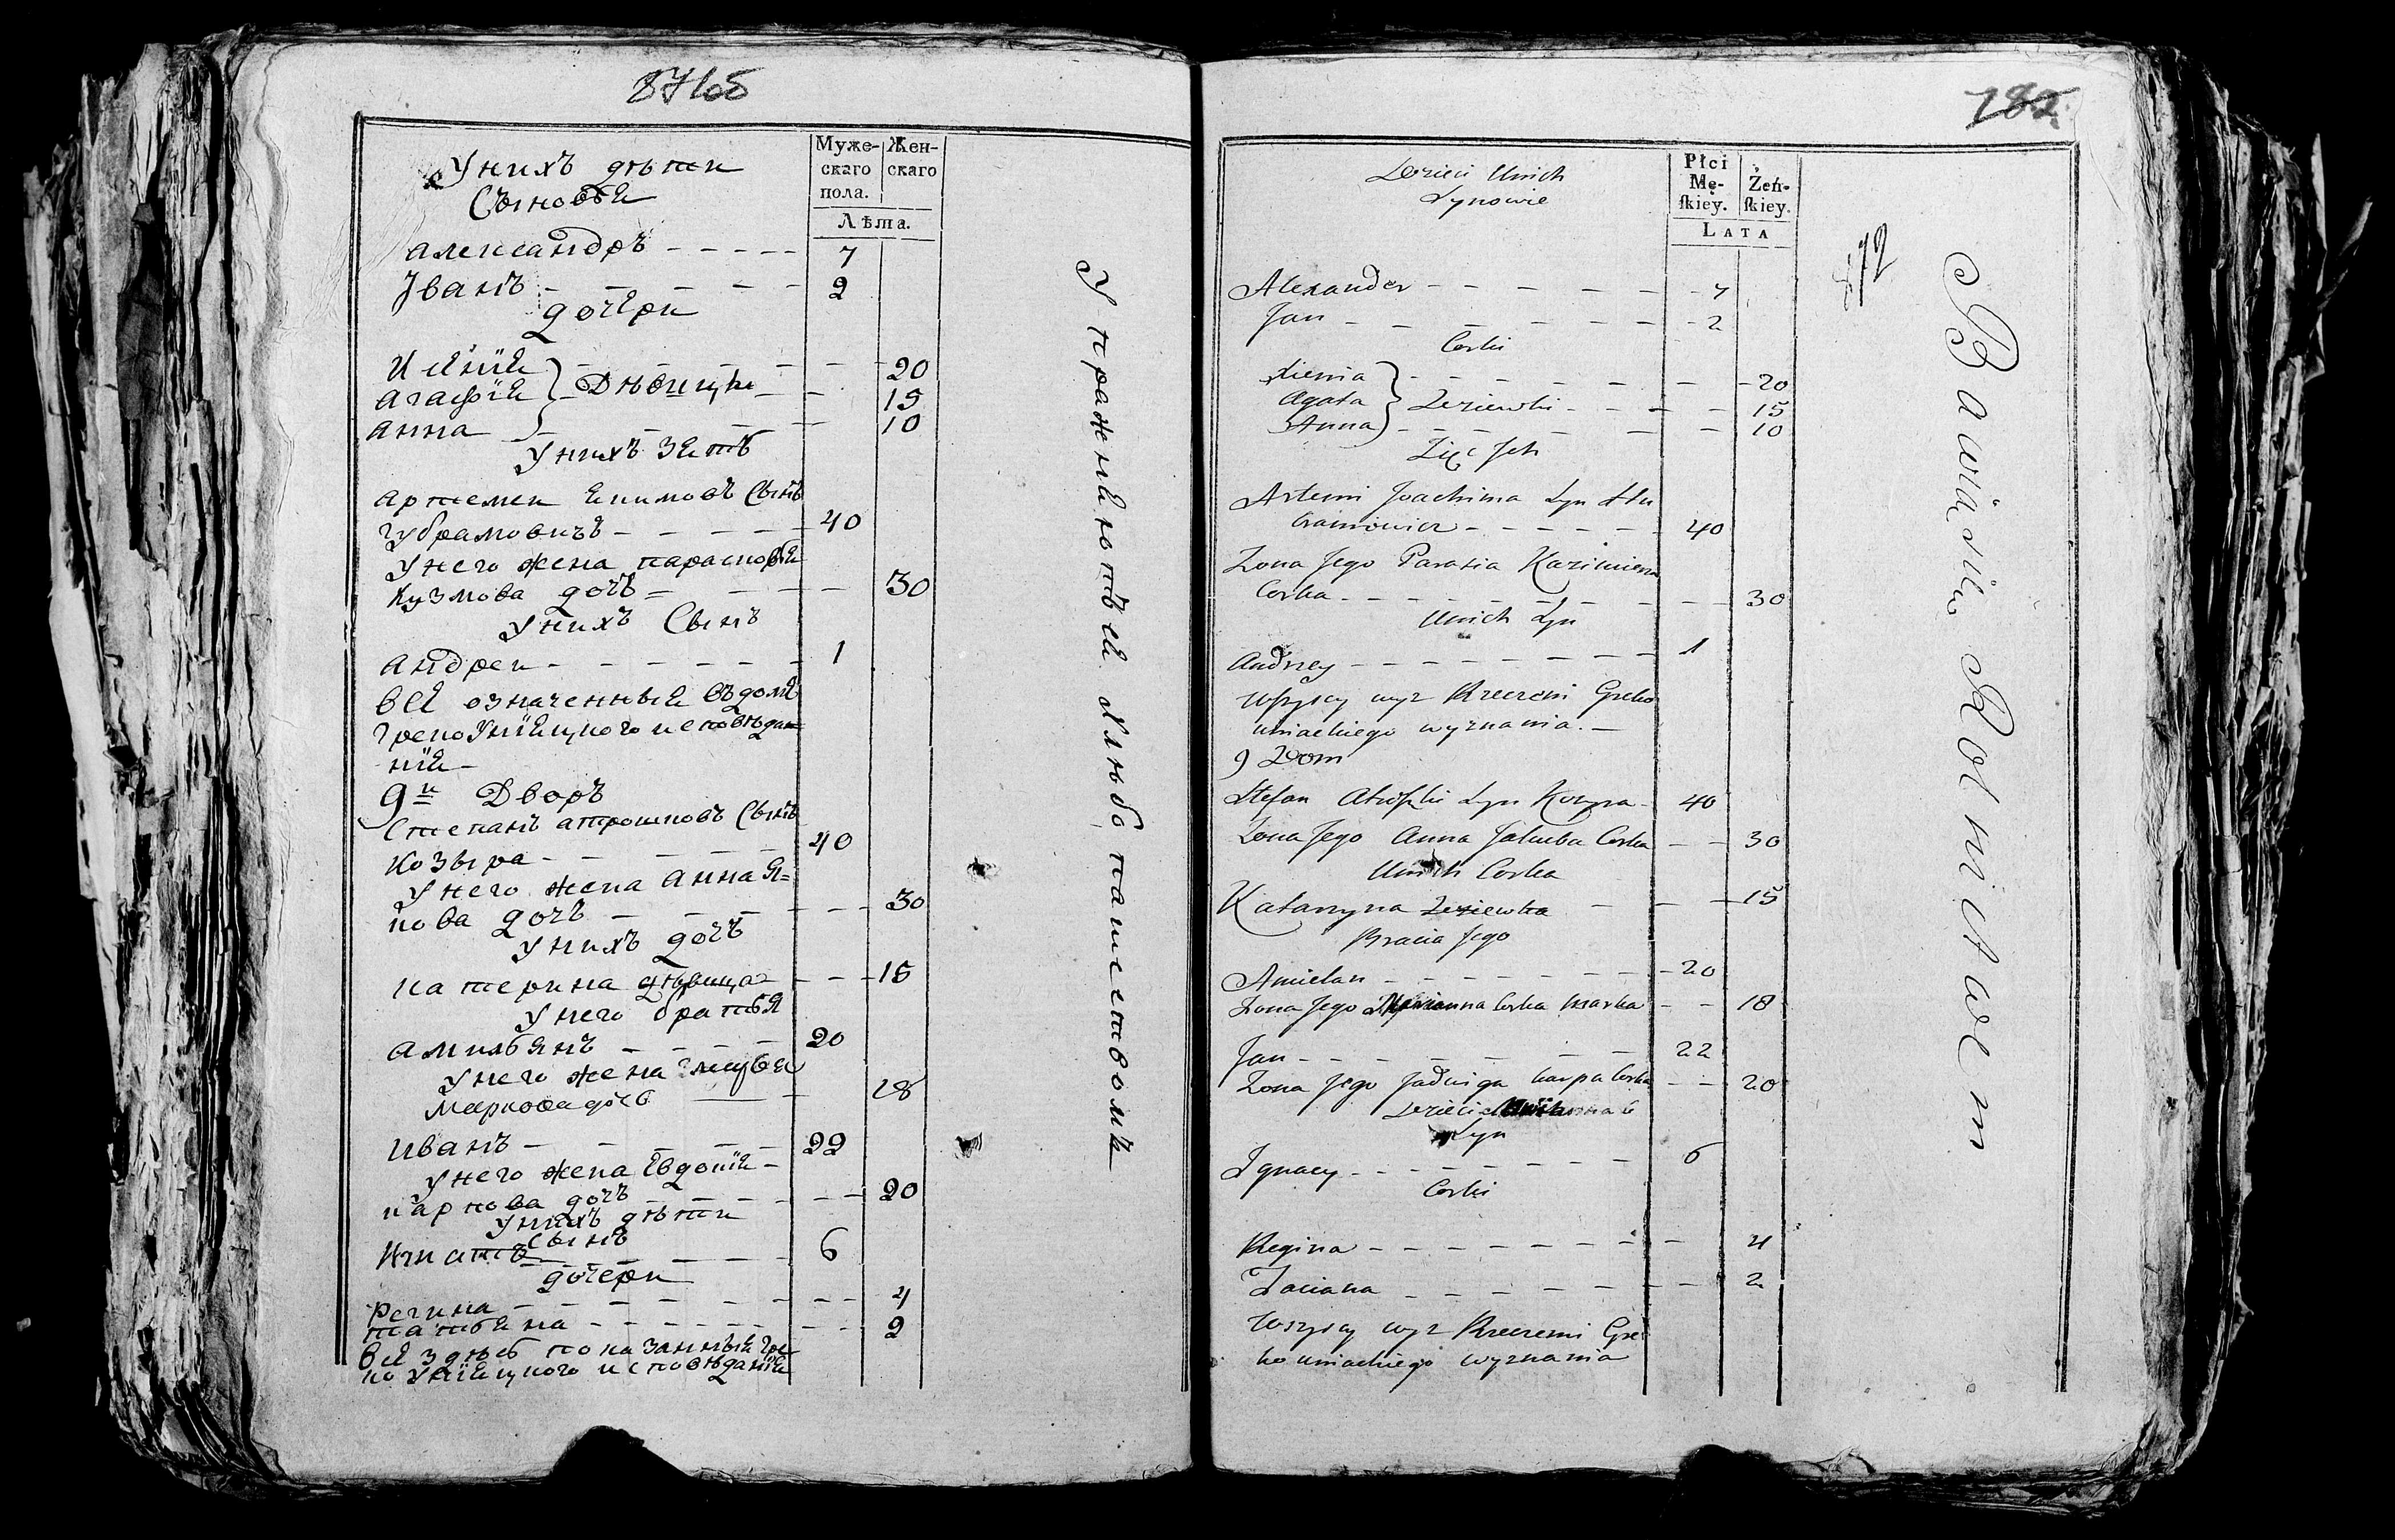 871об
Муже-
скаго
пола.
Жен-
скаго
Лѣта.
У нихъ дѣти
Сыновья
Александръ - - - - 7
Іванъ - - - - - 2
дочери
Ксенія - - - - 20
Агафія } Дѣвицы - - 15
Анна - - - - 10
У нихъ зять
Артемеи Якимовъ сынъ
- - - - 40
У него жена Парасковья
Кузмова дочъ - - - 30
У нихъ Сынъ
Андреи - - - - - - 1
Всѣ означенныя въ домѣ
Грекоуніяцкого исповѣда-
нія -
9й Дворъ
Степанъ Атрошковъ Сынъ
Козыра - - - - - 40
У него жена Анна Я=
кова дочъ - - - - 30
У нихъ дочъ
Катерина дѣвица - - - 15
У него братья
Амильянъ - - - - 20
У него жена
Маркова дочъ 18
Иванъ - - - - - 22
У него жена Евдокія -
Карпова дочъ - - - - 20
У нихъ дѣти
Сынъ
Игнатъ - - - - 6
дочери
Регина - - - - - - - 4
Татьяна - - - - - - - 2
Всѣ здѣсь показанныя Гре-
коуніяцкого исповѣданія
Упражняются хлѣбопашествомъ
182
Płci
Mę-
skiey.
Żeń-
skiey.
LATA
Dzieci Unich
Synowie
Alexander - - - - - 7
Jan - - - - - - 2
Corki
Xienia - - - - - - 20
Agata } Dziewki - - - - 15
Anna - - - - - - 10
Zięć Ich
Artemi Joachima Syn Hu
bramowicz - - - - - 40
Zona Jego Parasia Kazimierza
Corka - - - - - - - 30
Unich Syn
Andrzey - - - - - - - - 1
Wszyscy wyz Rzeczeni Greko
uniackiego wyznania. -
9 Dom
Stefan Atroszki Syn Kozyra - 40
Zona Jego Anna Jakuba Corka - - 30
Unich Corka
Katarzyna Dziewka - - - 15
Bracia Jego
Amielan - - - - - - - 20
Zona Jego Maryanna Corka Marka - - 18
Jan - - - - - - - 22
Zona Jego Jadwiga Karpa Corka - - 20
Dzieci
Syn
Ignacy - - - - - - - - 6
Corki
Regina - - - - - - - - - 4
Taciana - - - - - - - 2
Wszyscy wyz Rzeczeni Gre
ko uniackiego wyznania
472
Bawią się Rolnictwem